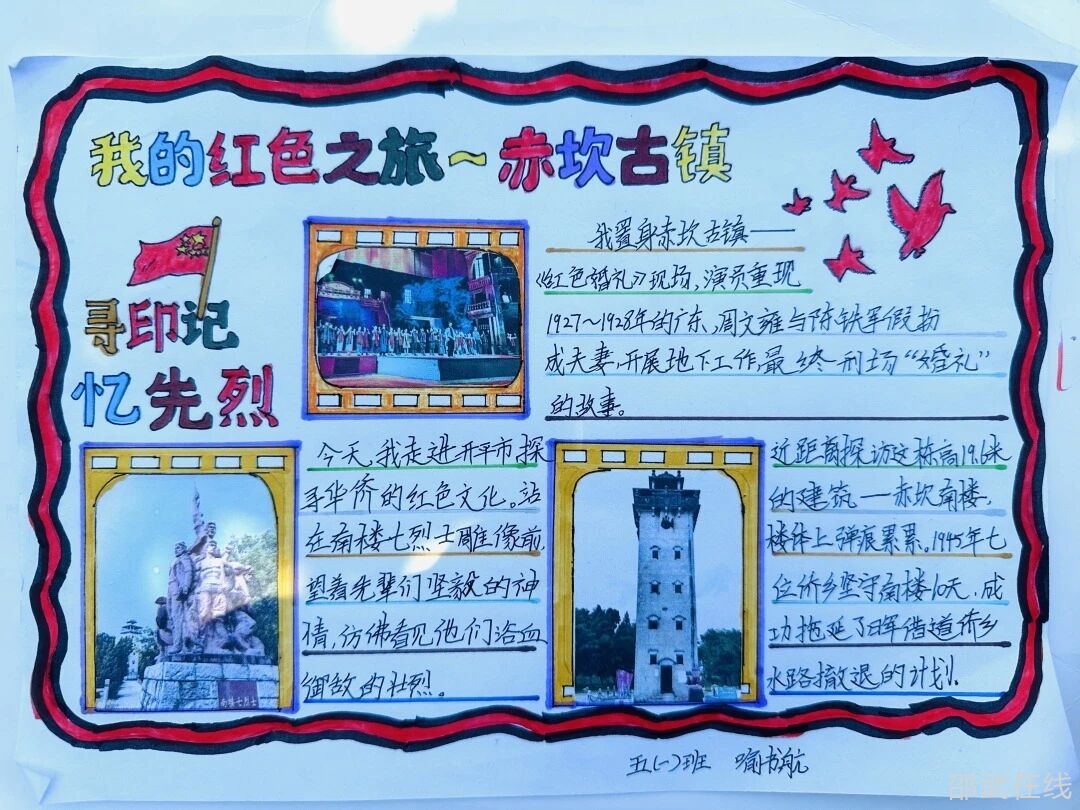 我的红色之旅~赤坎古镇
寻印记
忆先烈
我置身赤坎古镇——
《红色婚礼》现场,演员重现
1927~1928年的广东,周文雍与陈铁军假扮
成夫妻,开展地下工作,最终刑场“婚礼”
的故事。
今天,我走进开平市,探
寻华侨的红色文化。站
在南楼七烈士雕像前,
望着先辈们坚毅的神
情,仿佛看见他们浴血
御敌的壮烈。
南楼七烈士
近距离探访这栋高19.6米
的建筑——赤坎南楼,
楼体上弹痕累累。1945年七
位侨乡坚守南楼10天,成
功拖延了日军借道侨乡
水路撤退的计划.
五(一)班 喻书航
邵武在线